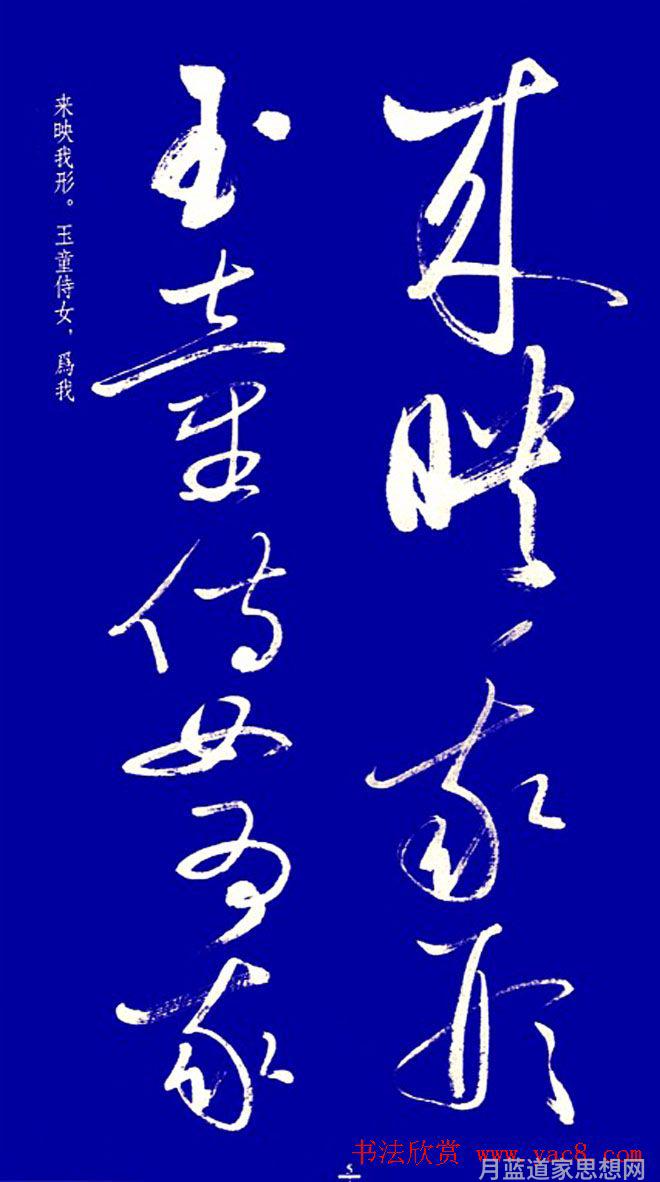 来映我形
玉童侍女為我
来映我形。玉童侍女，爲我
书法欣赏 www.yac8.com
5
月蓝道家思想网